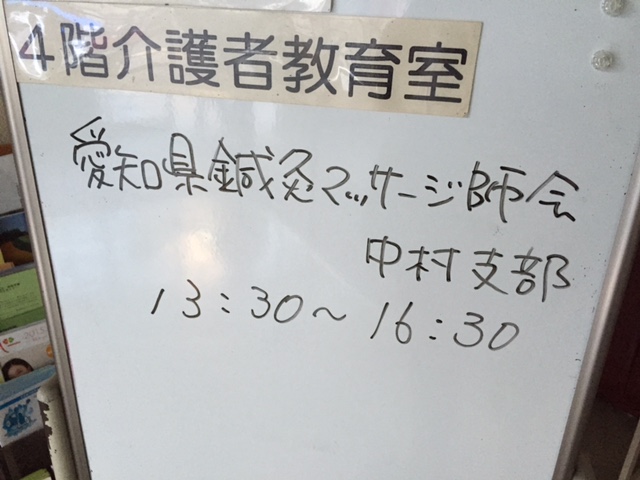 4階介護者教育室
愛知県鍼灸マッサージ師会
中村支部
13:30～16:30